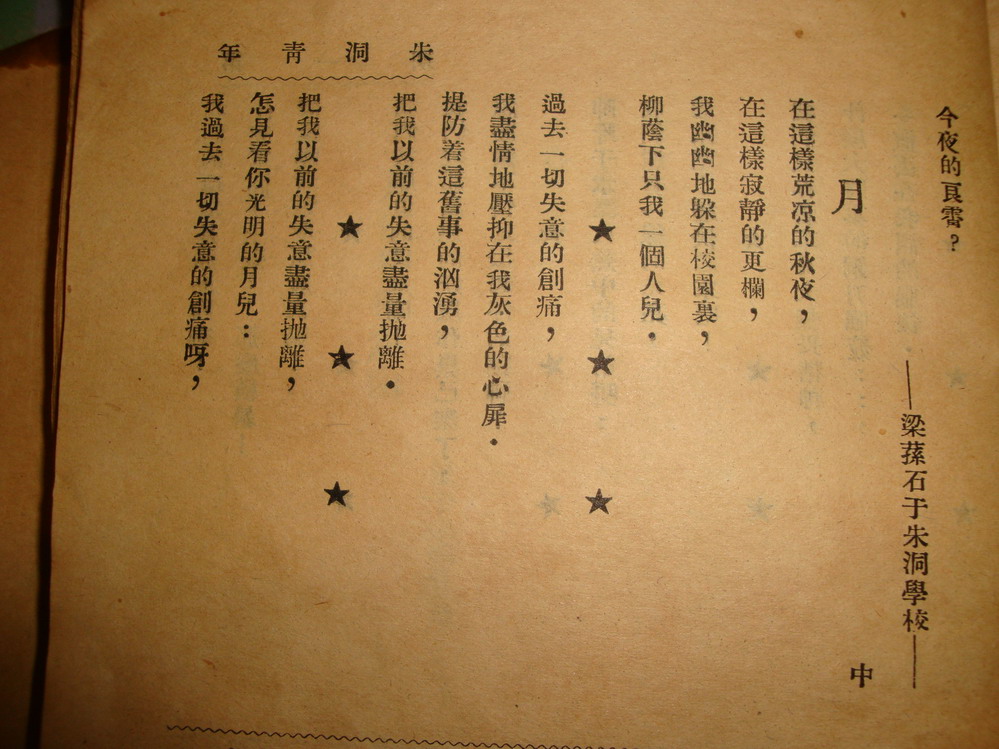 朱洞靑年
今夜的良霄?
——梁蓀石于朱洞學校——
月中
在這樣荒凉的秋夜,
在這樣寂靜的更欄,
我幽幽地躱在校園裏,
柳蔭下只我一個人兒.
★ ★ ★
過去一切失意的創痛,
我盡情地壓抑在我灰色的心扉.
提防着這舊事的汹湧,
把我以前的失意盡量抛離.
★ ★ ★
把我以前的失意盡量抛離,
怎見看你光明的月兒:
我過去一切失意的創痛呀,